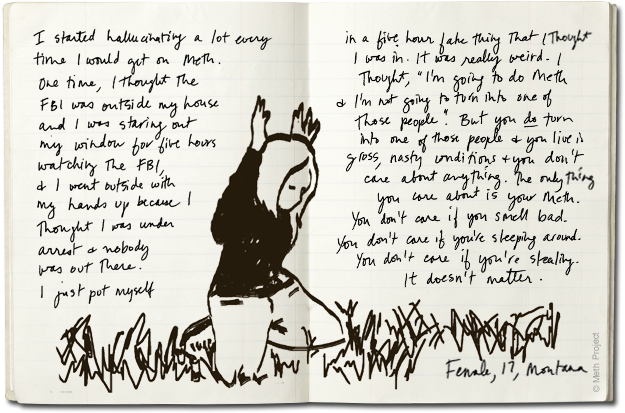 I started hallucinating a lot every
time I would get on Meth.
One time, I thought the
FBI was outside my house
and I was staring out
my window for five hours
watching the FBI,
& I went outside with
my hands up because I
thought I was under
arrest & nobody
was out there.
I just put myself
in a five hour fake thing that I thought
I was in. It was really weird. I
thought, "I'm going to do Meth
& I'm not going to turn into one of
those people". But you do turn
into one of those people & you live in
gross, nasty conditions & you don't
care about anything. The only thing
you care about is your Meth.
You don't care if you smell bad.
You don't care if you're sleeping around.
You don't care if you're stealing.
It doesn't matter.
Female, 17, Montana
© Meth Project